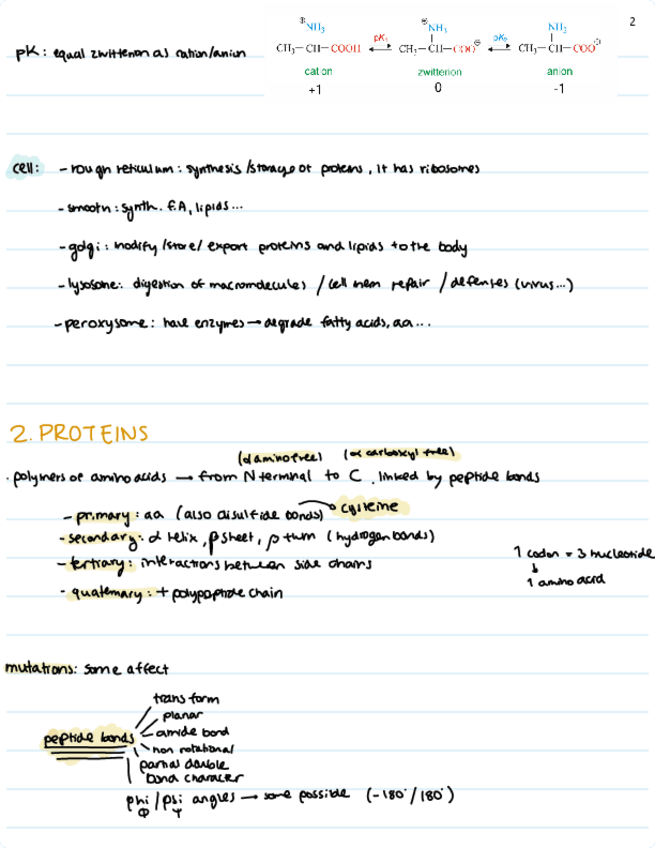 2
⊕NH₃ ⊕NH₃ NH₂
pK: equal zwitterion as cation/anion
CH₃—CH—COOH pK₁ CH₃—CH—COO⊖ pK₂ CH₃—CH—COO⊖
cation zwitterion anion
+1 0 -1
cell: - rough reticulum: synthesis/storage of proteins, it has ribosomes
- smooth: synth. F.A, lipids...
- golgi: modify/store/export proteins and lipids to the body
- lysosome: digestion of macromolecules / cell mem repair / defenses (virus...)
- peroxysome: have enzymes → degrade fatty acids, aa...
2. PROTEINS
(α amino free) (α carboxyl free)
· polymers of amino acids → from N terminal to C, linked by peptide bonds
- primary: aa (also disulfide bonds) → cysteine
- secondary: α helix, β sheet, β turn (hydrogen bonds)
- tertiary: interactions between side chains
- quaternary: + polypeptide chain
1 codon = 3 nucleotide
↓
1 amino acid
mutations: some affect
peptide bonds
trans form
planar
amide bond
non rotational
partial double
bond character
phi/psi angles → some possible (-180°/180°)
Φ Ψ